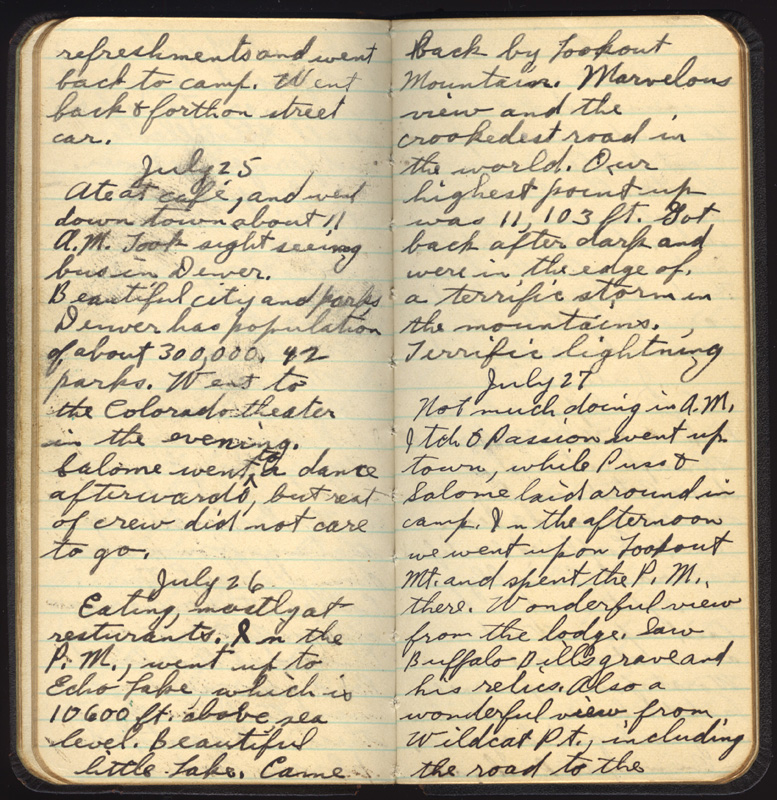 refreshments and went
back to camp. Went
back & forth on street
car.
July 25
Ate at café, and went
down town about 11
A.M. Took sight seeing
bus in Denver.
Beautiful city and parks
Denver has population
of about 300,000. 42
parks. Went to
the Colorado theater
in the evening.
Salome went to a dance
afterwards, but rest
of crew did not care
to go.
July 26
Eating, mostly at
resturants. In the
P.M., went up to
Echo Lake, which is
10600 ft. above sea
level. Beautiful
little Lake. Came
Back by Lookout
Mountain. Marvelous
view and the
crookedest road in
the world. Our
highest point up
was 11,103 ft. Got
back after dark and
were in the edge of
a terrific storm in
the mountains.
Terrific lightning
July 27
Not much doing in A.M.
Itch & Passion went up
town, while Puss &
Salome laid around in
camp. In the afternoon
we went up on Lookout
Mt. and spent the P.M.
there. Wonderful view
from the lodge. Saw
Buffalo Bill's grave and
his relics. Also a
wonderful view from
Wildcat Pt., including
the road to the